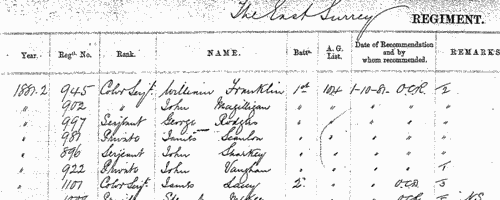 The East Surrey REGIMENT.
Year. Regtl. No. Rank. NAME. Batn. A. G. List. Date of Recommendation and by whom recommended. REMARKS
1881-2 945 Color Serjt. William Franklin 1st 104 1-10-81 O.C.R. 2
" 902 " John Magilligan " " " " "
" 997 Serjeant George Rodgers " " " " "
" 981 Private James Scanlon " " " " "
" 896 Serjeant John Sharkey " " " " "
" 922 Private John Vaughan " " " " 1
" 1101 Color Serjt. James Lacey 2. " " O.C.R. 3